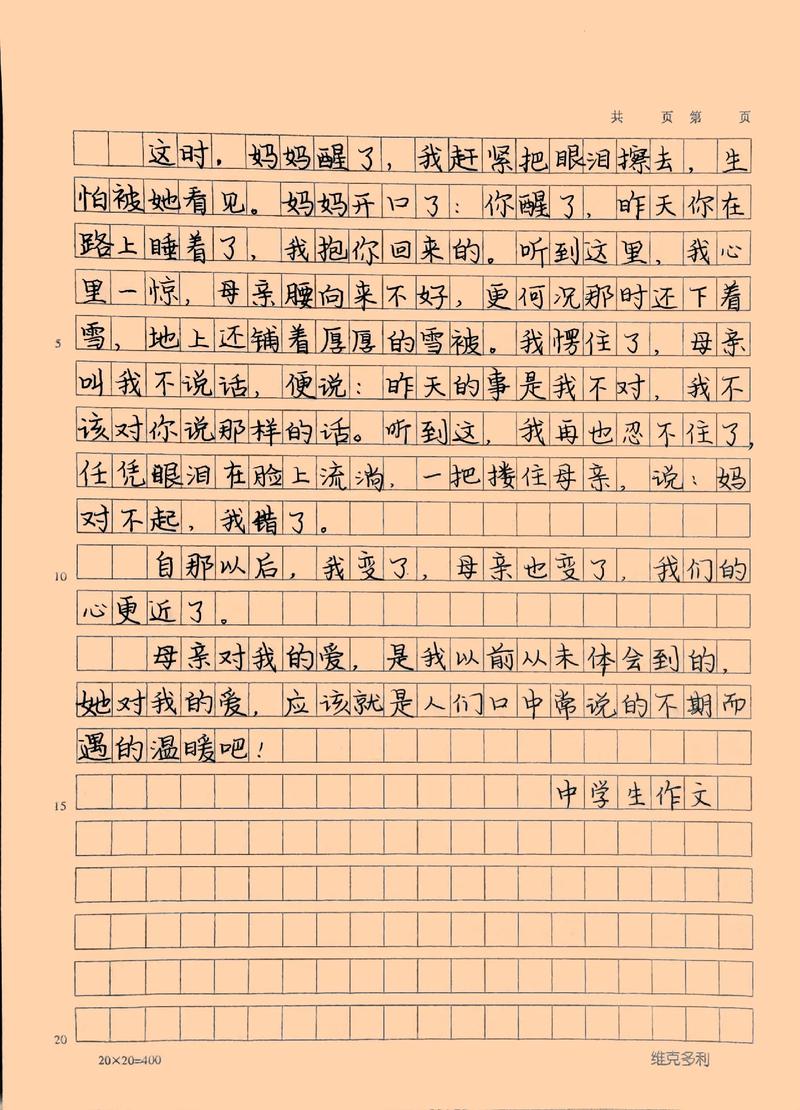 共 页 第 页
这时，妈妈醒了，我赶紧把眼泪擦去，生
怕被她看见。妈妈开口了：你醒了，昨天你在
路上睡着了，我抱你回来的。听到这里，我心
里一惊，母亲腰向来不好，更何况那时还下着
5 雪，地上还铺着厚厚的雪被。我愣住了，母亲
叫我不说话，便说：昨天的事是我不对，我不
该对你说那样的话。听到这，我再也忍不住了，
任凭眼泪在脸上流淌，一把搂住母亲，说：妈
对不起，我错了。
10 自那以后，我变了，母亲也变了，我们的
心更近了。
母亲对我的爱，是我以前从未体会到的，
她对我的爱，应该就是人们口中常说的不期而
遇的温暖吧！
15 中学生作文
20
20×20=400 维克多利